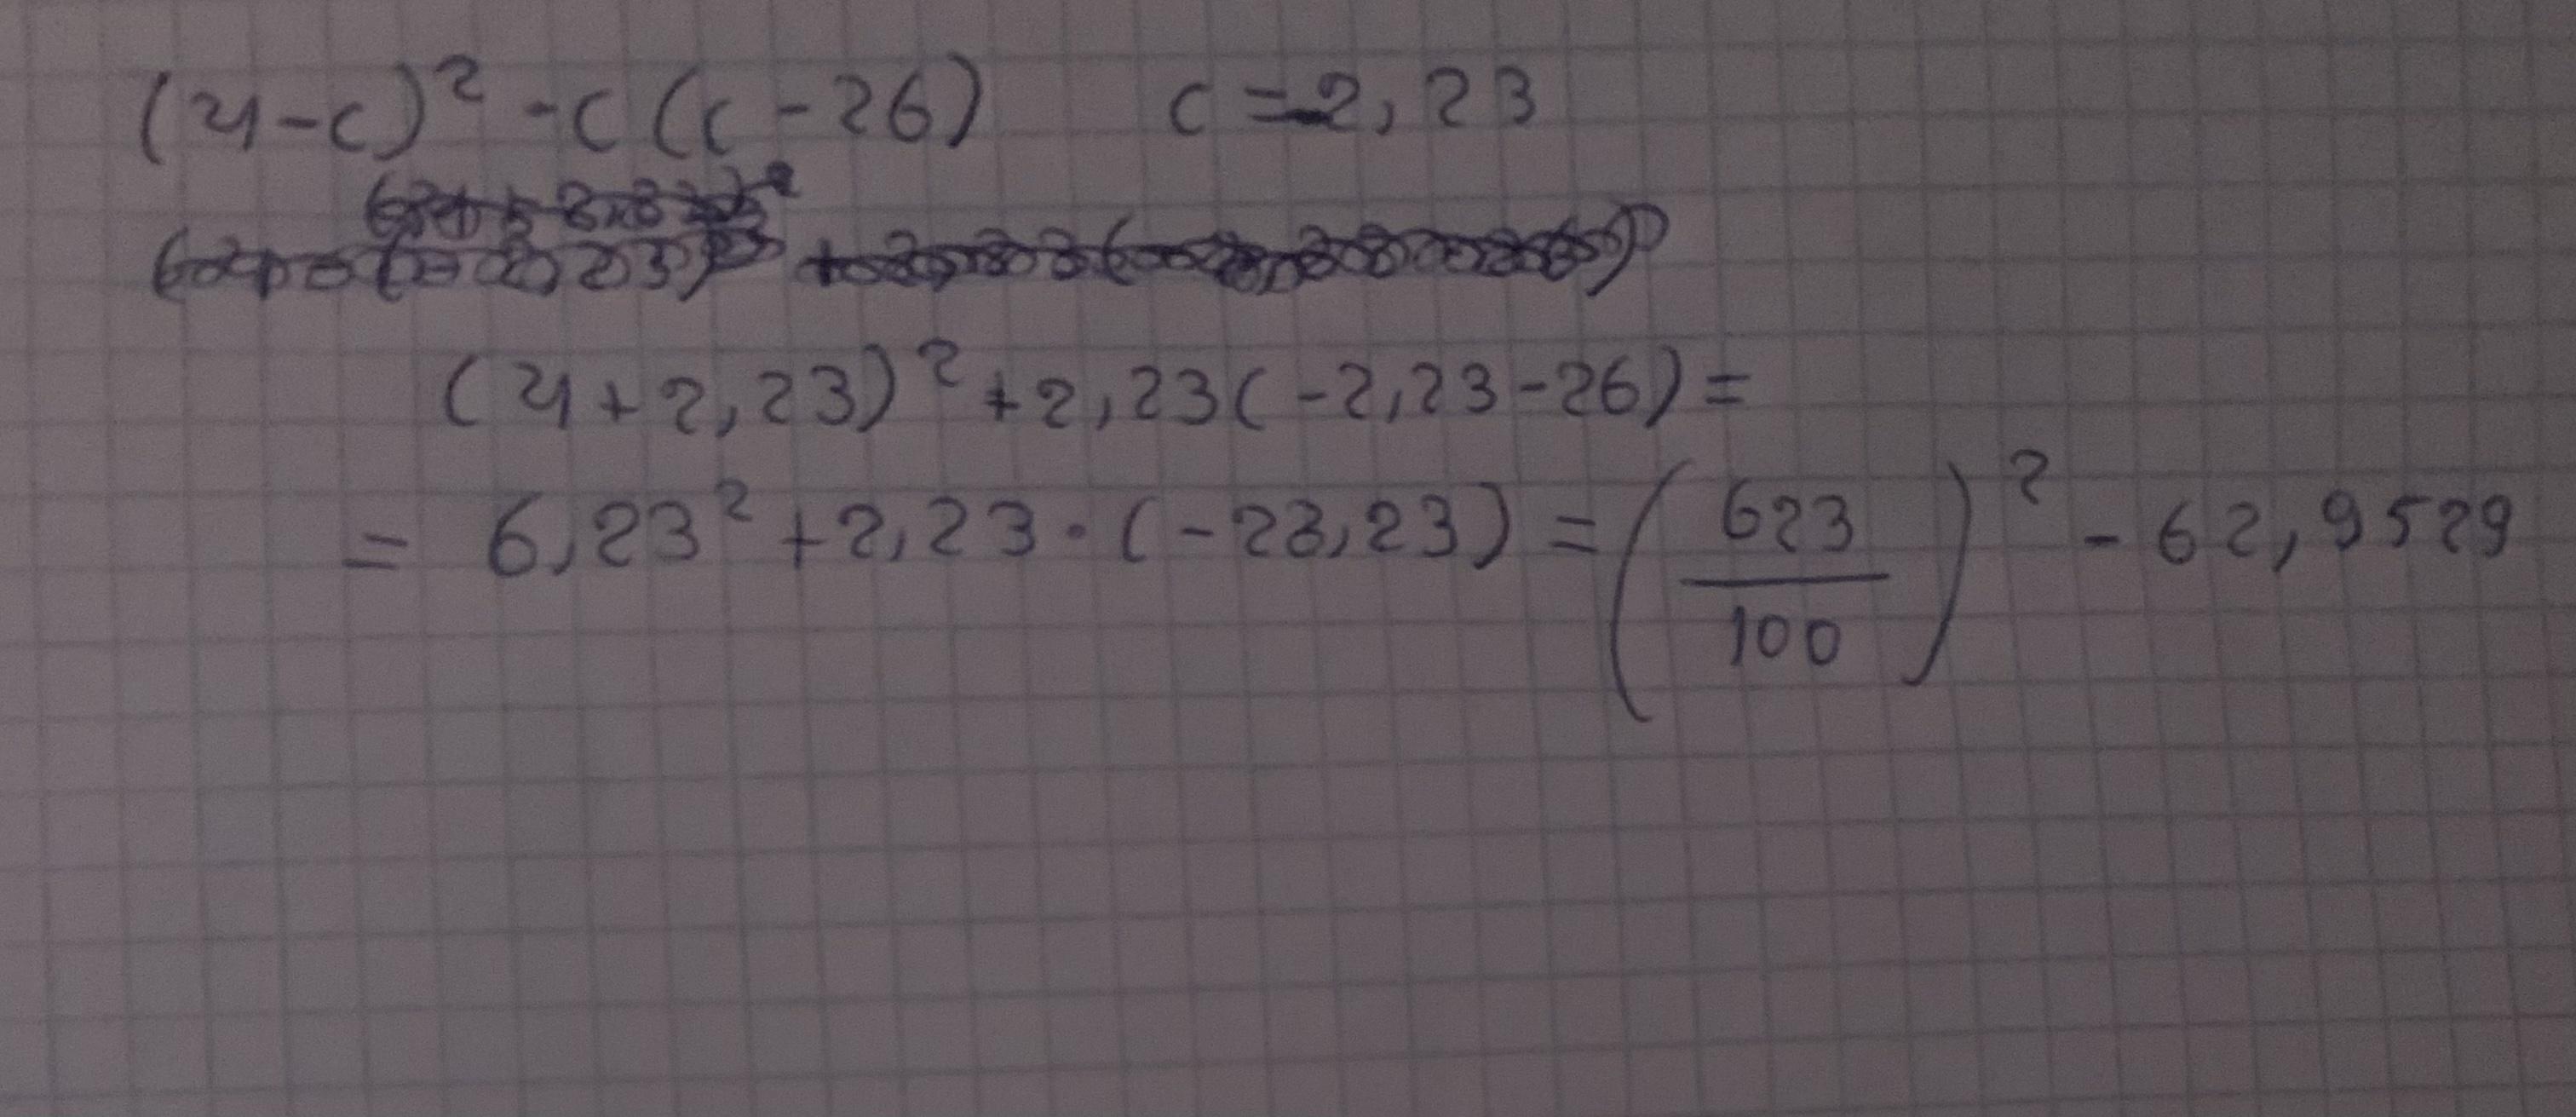 (4-c)² - c (c - 26) c = -2,23
(4 + 2,23)² + 2,23 (-2,23 - 26) =
= 6,23² + 2,23 · (-28,23) = (623/100)² - 62,9529